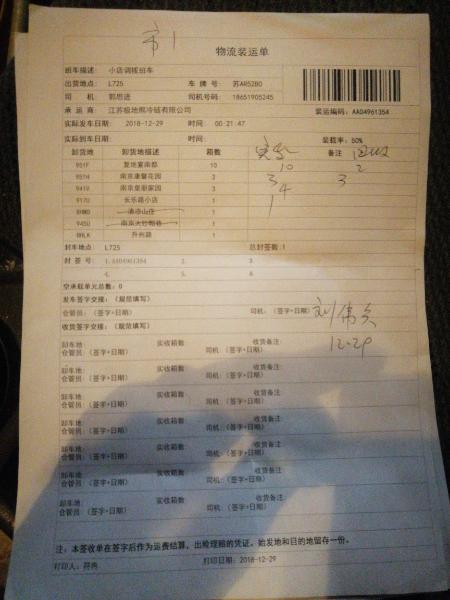 市1
物流装运单
班车描述: 小店调拨班车
出货地点: L725 车 牌 号: 苏AR52B0
司 机: 郭思进 司机号码: 18651905245
承 运 商: 江苏极地熊冷链有限公司 装运编码: AA04961354
实际发车日期: 2018-12-29 时间: 00:21:47
实际到车日期: 时间: 装载率: 50%
卸货地 卸货地描述 箱数 实发 备注
951F 复地宴南都 10 10 2
957H 南京康馨花园 3 3 3
941V 南京皇册家园 3 4
917U 长乐路小店 1 1
清凉山庄 1
945U 1
8HLK 升州路 1
封车地点: L725 总封签数:1
封 签 号: 1.AA04961354 2. 3.
4. 5. 6.
空承载单元总数: 0
发车签字交接: (规范填写)
仓管员: (签字+日期) 司机: (签字+日期)
收货签字交接: (规范填写) 12-29
卸车地 实收箱数 收货备注:
仓管员: (签字+日期) 司机: (签字+日期)
卸车地: 实收箱数 收货备注:
仓管员: (签字+日期) 司机: (签字+日期)
卸车地: 实收箱数 收货备注:
仓管员: (签字+日期) 司机: (签字+日期)
卸车地: 实收箱数 收货备注:
仓管员: (签字+日期) 司机: (签字+日期)
卸车地: 实收箱数 收货备注:
仓管员: (签字+日期) 司机: (签字+日期)
卸车地: 实收箱数 收货备注
仓管员: (签字+日期) 司机: (签字+日期)
卸车地: 实收箱数 收货备注
仓管员: (签字+日期) 司机: (签字+日期)
注: 本签收单在签字后作为运费结算、出险理赔的凭证。始发地和目的地留存一份。
打印人: 符冉 打印日期: 2018-12-29